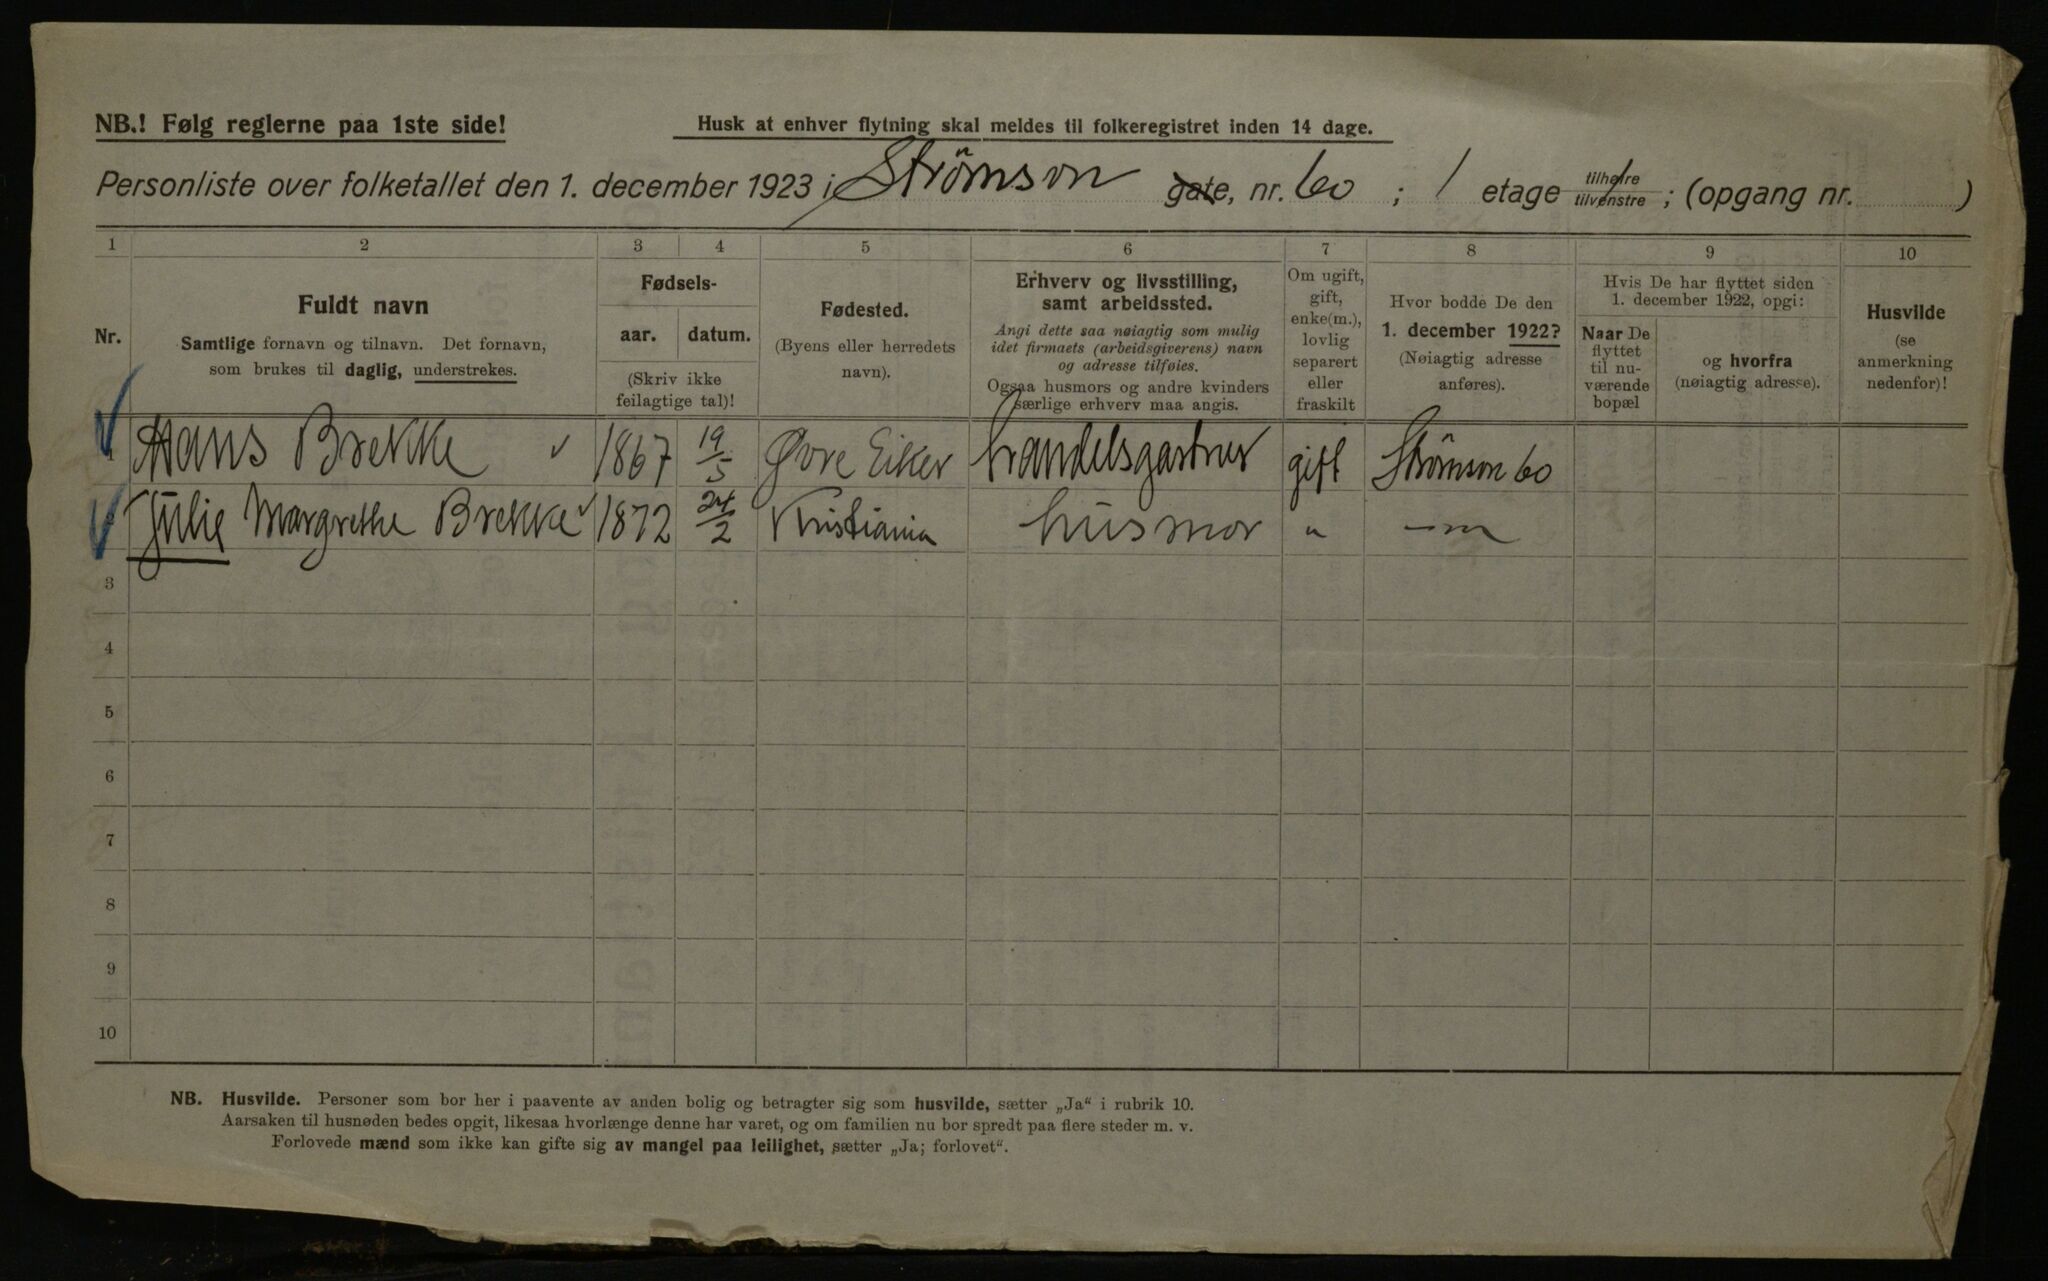 NB.! Følg reglerne paa 1ste side!
Husk at enhver flytning skal meldes til folkeregistret inden 14 dage.
Personliste over folketallet den 1. december 1923 i Strömson gate, nr. 60 ; 1 etage tilhøire tilvenstre ; (opgang nr. )
1 2 3 4 5 6 7 8 9 10
Nr.
Fuldt navn
Samtlige fornavn og tilnavn. Det fornavn,
som brukes til daglig, understrekes.
Fødsels-
aar. datum.
(Skriv ikke
feilagtige tal)!
Fødested.
(Byens eller herredets
navn).
Erhverv og livsstilling,
samt arbeidssted.
Angi dette saa nøiagtig som mulig
idet firmaets (arbeidsgiverens) navn
og adresse tilføies.
Ogsaa husmors og andre kvinders
særlige erhverv maa angis.
Om ugift,
gift,
enke(m.),
lovlig
separert
eller
fraskilt
Hvor bodde De den
1. december 1922?
(Nøiagtig adresse
anføres).
Hvis De har flyttet siden
1. december 1922, opgi:
Naar De
flyttet
til nu-
værende
bopæl
og hvorfra
(nøiagtig adresse).
Husvilde
(se
anmerkning
nedenfor)!
Hans Brekke 1867 19/5 Øvre Eiker handelsgartner gift Strömson 60
Julie Margrethe Brekke 1872 24/2 Kristiania husmor " —"—
3
4
5
6
7
8
9
10
NB. Husvilde. Personer som bor her i paavente av anden bolig og betragter sig som husvilde, sætter „Ja“ i rubrik 10.
Aarsaken til husnøden bedes opgit, likesaa hvorlænge denne har varet, og om familien nu bor spredt paa flere steder m. v.
Forlovede mænd som ikke kan gifte sig av mangel paa leilighet, sætter „Ja; forlovet“.